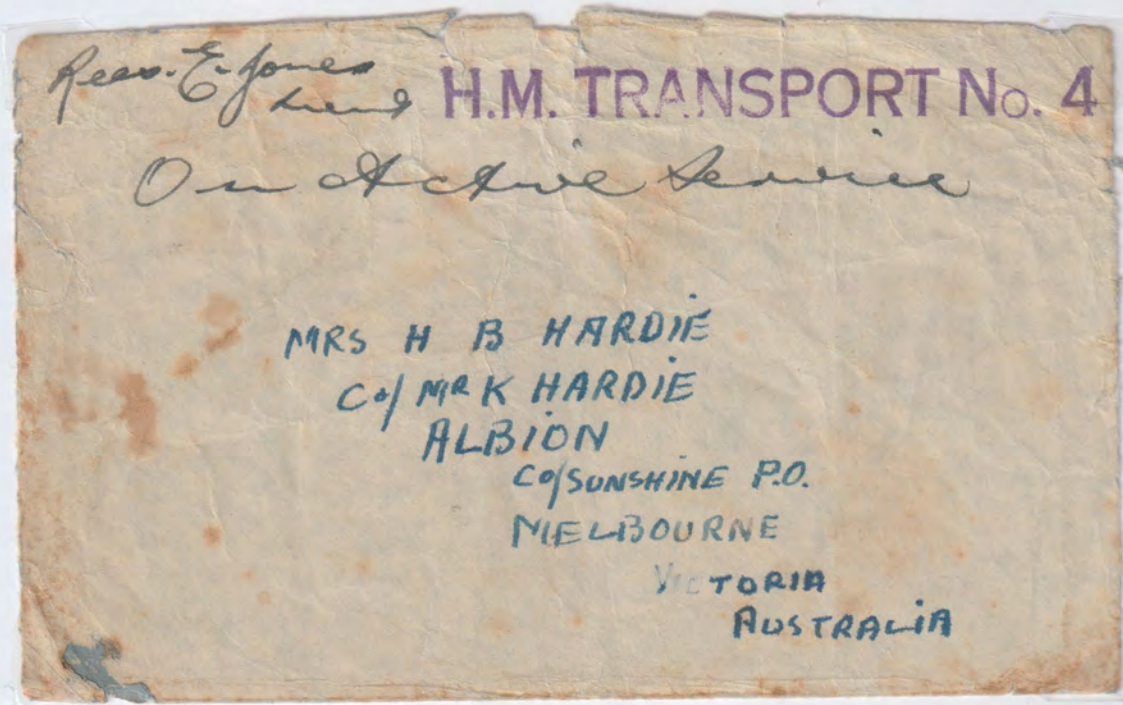 Rees. E. Jones
Lieut
H.M. TRANSPORT No. 4
On Active Service
MRS H B HARDIE
C/o MR K HARDIE
ALBION
C/o SUNSHINE P.O.
MELBOURNE
VICTORIA
AUSTRALIA